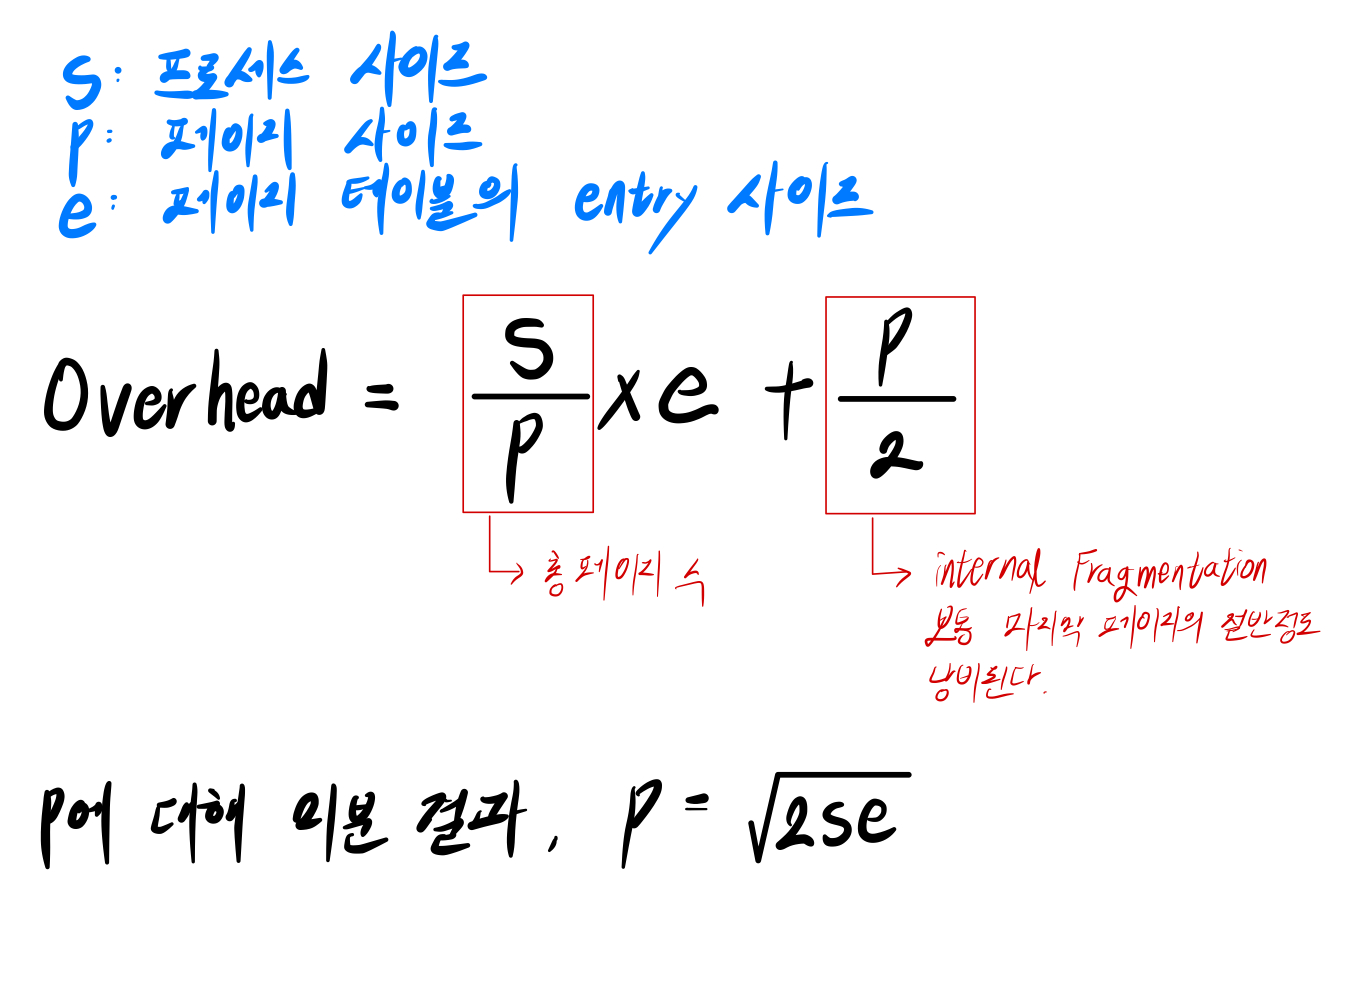 s: 프로세스 사이즈
p: 페이지 사이즈
e: 페이지 테이블의 entry 사이즈
Overhead = s/p × e + p/2
총 페이지 수
internal Fragmentation
보통 마지막 페이지의 절반정도
낭비된다.
p에 대해 미분 결과, p = √2se